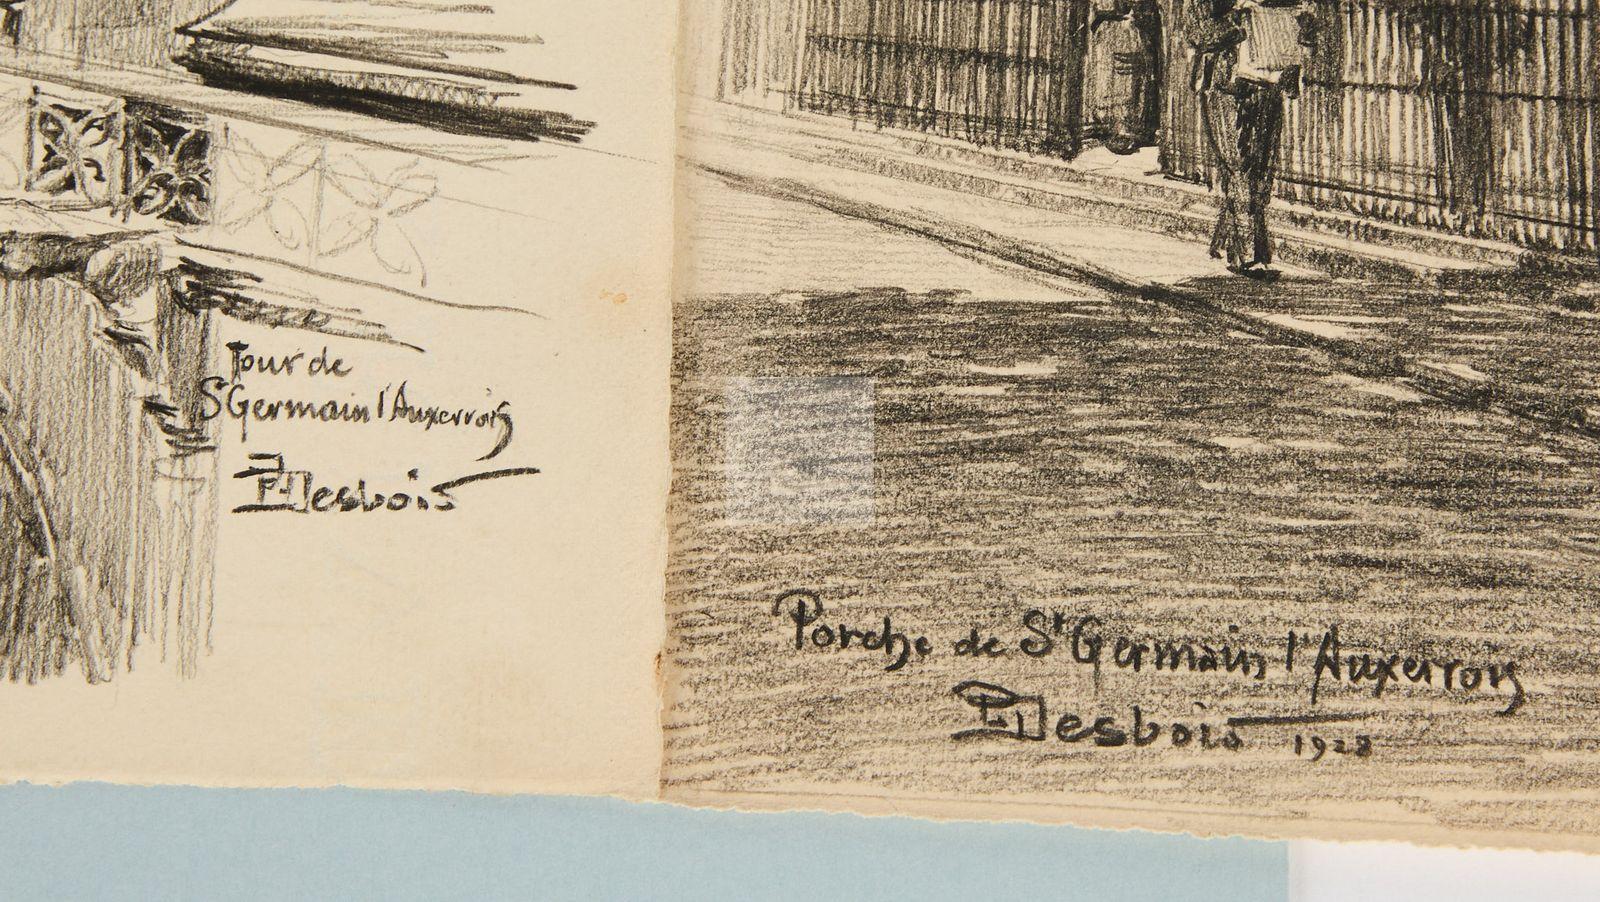 Tour de
St Germain l'Auxerrois
P Desbois
Porche de St Germain l'Auxerrois
P Desbois 1928